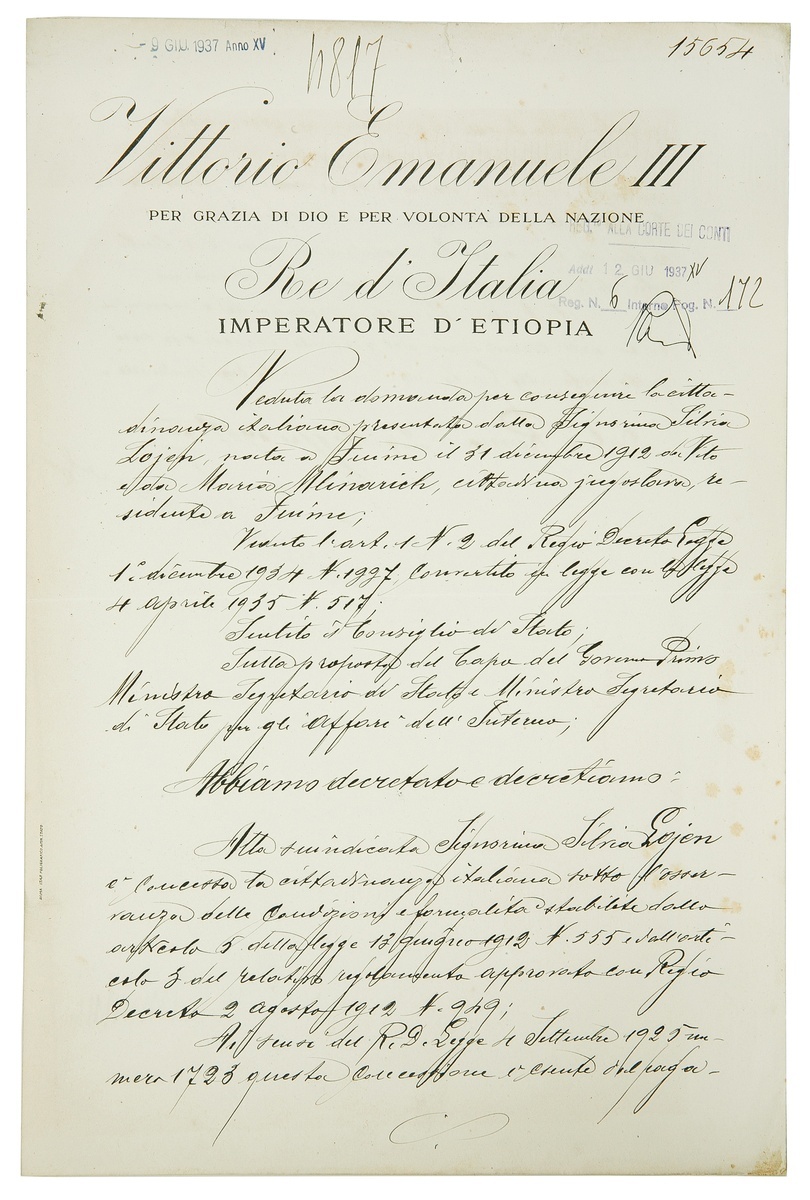 - 9 GIU. 1937 Anno XV
15654
Vittorio Emanuele III
PER GRAZIA DI DIO E PER VOLONTA' DELLA NAZIONE
REG.to ALLA CORTE DEI CONTI
Addì 12 GIU 1937 XV
Re d'Italia
Reg. N. 6 Interno Fog. N. 172
IMPERATORE D'ETIOPIA
Veduta la domanda per conseguire la citta-
dinanza italiana presentata dalla Signorina Silvia
Lojen, nata a Fiume il 31 dicembre 1912 da Vito
e da Maria Mlinarich, cittadina jugoslava, re-
sidente a Fiume;
Veduto l'art. 1 N. 2 del Regio Decreto Legge
1° dicembre 1934 N. 1997, convertito in legge con la legge
4 aprile 1935 N. 517;
Sentito il Consiglio di Stato;
Sulla proposta del Capo del Governo Primo
Ministro Segretario di Stato e Ministro Segretario
di Stato per gli Affari dell'Interno;
Abbiamo decretato e decretiamo:
Alla suindicata Signorina Silvia Lojen
è concessa la cittadinanza italiana sotto l'osser-
vanza delle condizioni e formalità stabilite dallo
articolo 5 della legge 13 giugno 1912 N. 555 e dall'arti-
colo 3 del relativo regolamento approvato con Regio
Decreto 2 agosto 1912 N. 949;
Ai sensi del R. D. Legge 4 Settembre 1925 nu-
mero 1723 questa concessione è esente dal paga-